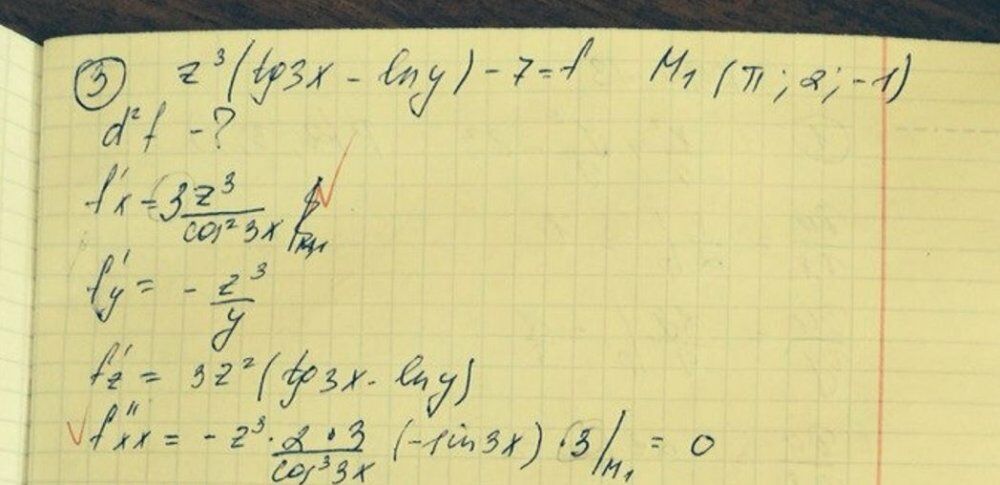 ③ z³(tg3x - lny) - 7 = f M₁(π; 2; -1)
d²f - ?
f'x = 3 z³/cos²3x
f'y = - z³/y
f'z = 3z²(tg3x - lny)
f''xx = - z³ · 2·3/cos³3x (-sin3x) · 3 |M₁ = 0